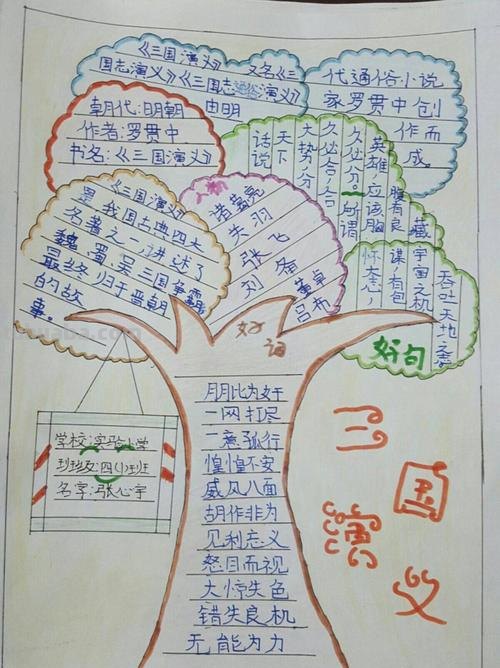 《三国演义》 又名《三
国志演义》《三国志通俗演义》
由明
代通俗小说
家罗贯中创
作而
成。
朝代:明朝
作者:罗贯中
书名:《三国演义》
话说
天下
大势,分
久必合,合
久必分。所谓
英雄,应该胸
怀大志,
腹有良
谋,有包
藏
宇宙之机
吞吐天地之志
好句
《三国演义》
是我国古典四大
名著之一讲述了
魏 蜀 吴三国争霸
最终归于晋朝
的故
事。
诸葛亮
关羽
张飞
刘备
董卓
吕布
好词
朋比为奸
一网打尽
一意孤行
惶惶不安
威风八面
胡作非为
见利忘义
怒目而视
大惊失色
错失良机
无能为力
学校:实验小学
班级:四(1)班
名字:张心宇
三国演义